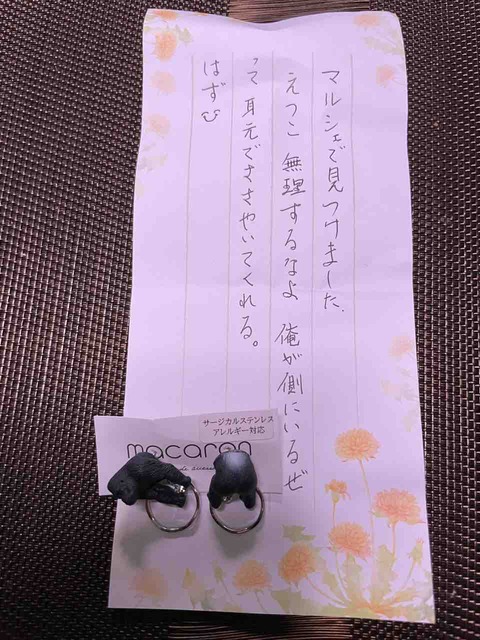 マルシェで見つけました、
えつこ 無理するなよ 俺が側にいるぜ
って耳元でささやいてくれる。
はず
サージカルステンレス
アレルギー対応
macaron